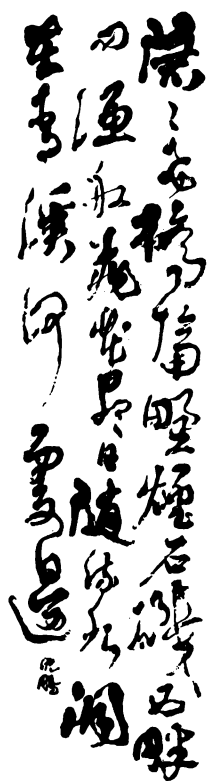 隱隱飛橋隔野煙石磯西畔
問漁船桃花盡日隨流水洞
在清溪何處邊